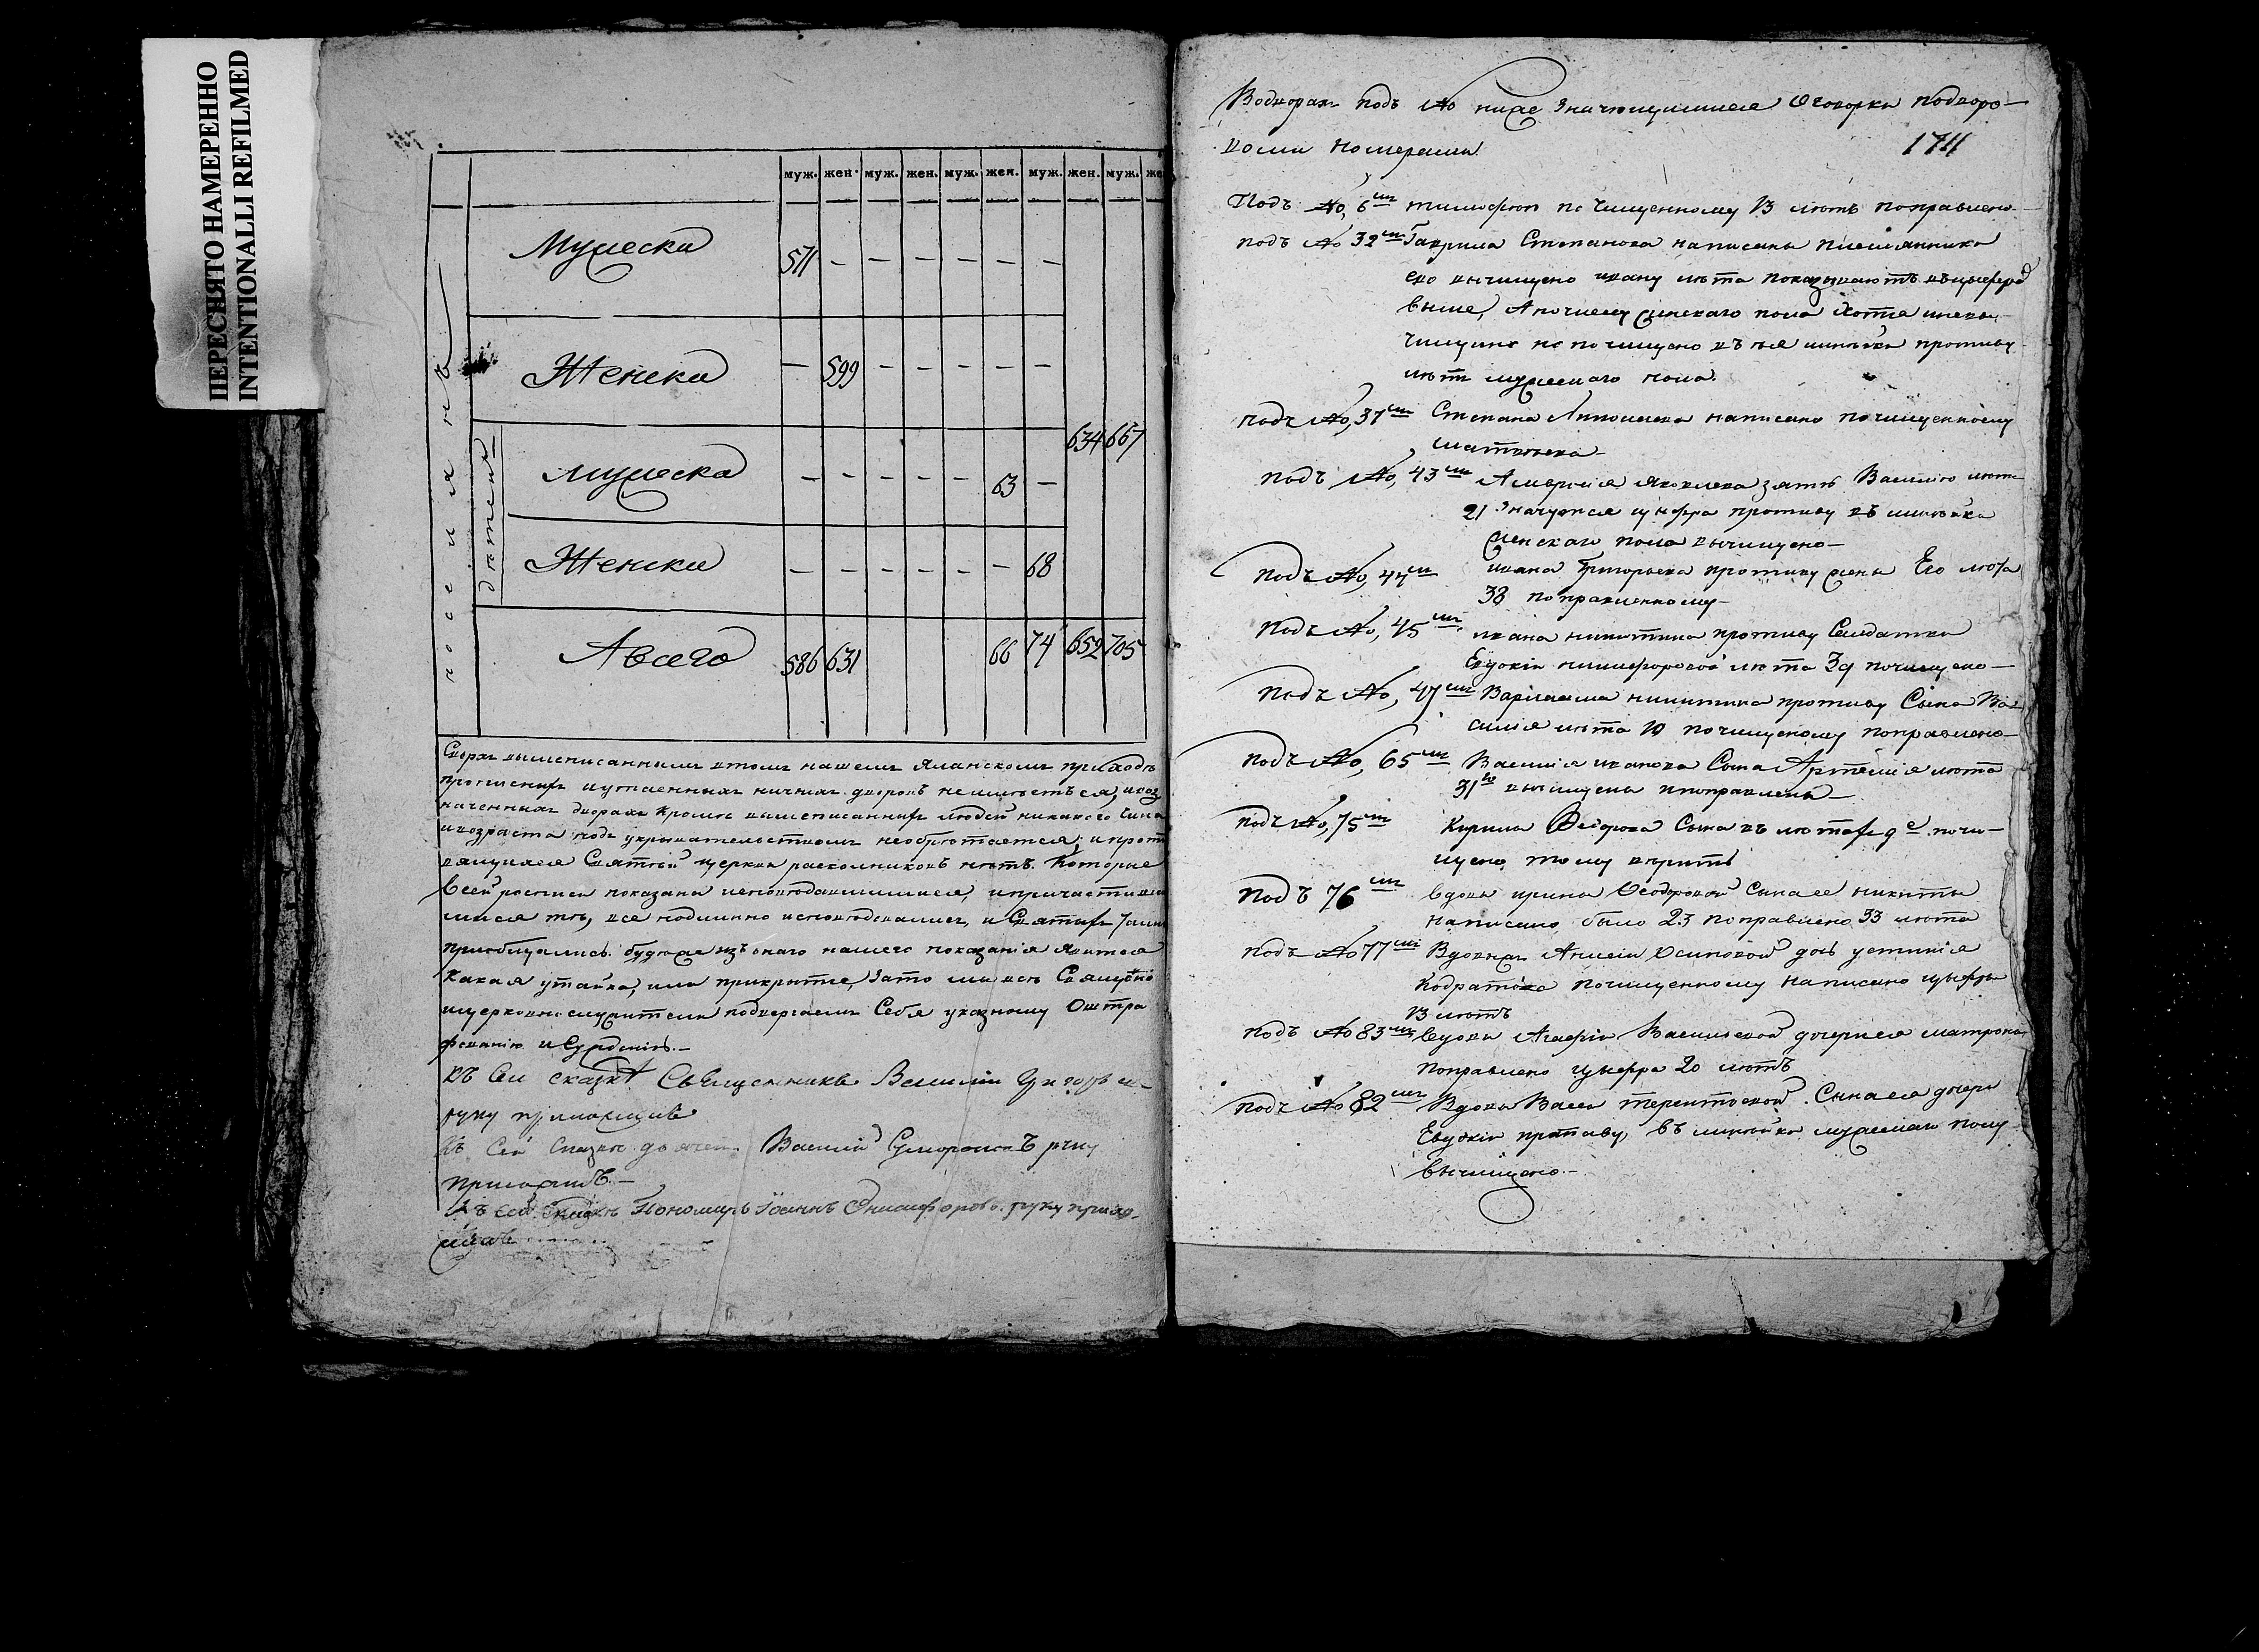 ПЕРЕСНЯТО НАМЕРЕННО
INTENTIONALLI REFILMED
муж. жен. муж. жен. муж. жен. муж. жен. муж. же
поселянъ
Мужеска 571 — — — — — —
Женска — 599 — — — — —
634 667
дѣтей
мужеска — — — — — 63 —
Женска — — — — — — 68
А всего 586 631 66 74 652 705
Сверхъ вышеписанныхъ втомъ нашемъ Яланскомъ приходѣ
прописныхъ иутаенныхъ ничьихъ дворовъ неимѣетъся, ивоз
наченныхъ дворахъ Кромѣ вышеписанныхъ людей никакого Чина
ивозраста подъ укрывательствомъ необрѣтается; ипроти
вящихся Святѣй церкви раскольниковъ нѣтъ. Которые
Всей росписи показаны исповѣдавшимися, ипричастивши
мися тѣ, все подлинно исповѣдовались, и Святыхъ Таинъ
приобщались. будеже изъ онаго нашего показанія явится
Какая утайка, или прикрытие, Зато мы всѣ Священно
ицерковнослужители подвергаемъ Себя указному Оштра
фованію и Сужденію.—
Къ Сей сказкѣ Священникъ Василий
руку приложилъ
Къ Сей Сказкѣ дьячекъ Василий руку
приложилъ.—
Къ сей Сказкѣ Пономарь Іоаннъ руку прило
жилъ
Водворахъ подъ № ниже Значющимися Оговорка подворо—
выми номерами.
1711
Подъ №, 6мъ тимофею по Чищенному 13 лѣтъ поправлено.—
подъ № 32мъ Гаврила Степанова написаны племянника
ево вычищено ивану лѣта показываютъ
выше, Апочему женскаго пола хотя
чищено но почищено противу
лѣтъ мужескаго пола.
подъ №, 37мъ Степана написано почищенному
подъ №, 43мъ Яковлева зять Василью лѣтъ
21 Значится цыфра противу въ
женскаго пола вычищено—
подъ №, 44мъ ивана Григорьева противу жены Его лѣта
38 поправленному—
подъ №, 45мъ ивана никитина противу Солдатки
Евдокіи никифоровой лѣта 39 почищено—
подъ №, 47мъ Варлаама никитина противу Сына Ва
силия лѣта 10 почищеному поправлено—
подъ №, 65мъ Василия иванова Сына Артемия лѣта
31 вычищены ипоправлены—
подъ №, 75мъ Кирила Федорова Сына въ лѣтахъ 9е почи—
щено, тому вѣрить
подъ 76мъ вдовы ирины Феодоровой Сына ее никиты
написано было 23 поправлено 33 лѣта
подъ № 77мъ Вдовыхъ Осиповой дочь устиния
почищенному написано цыфры
13 лѣтъ
подъ № 83мъ вдовы Агафіи Васильевой дочерися матроны
поправлено цыфра 20 лѣтъ
подъ № 82мъ Вдовы Терентьевой Сына ея дочери
Евдокіи противу, въ мужеска полу
вычищено.—